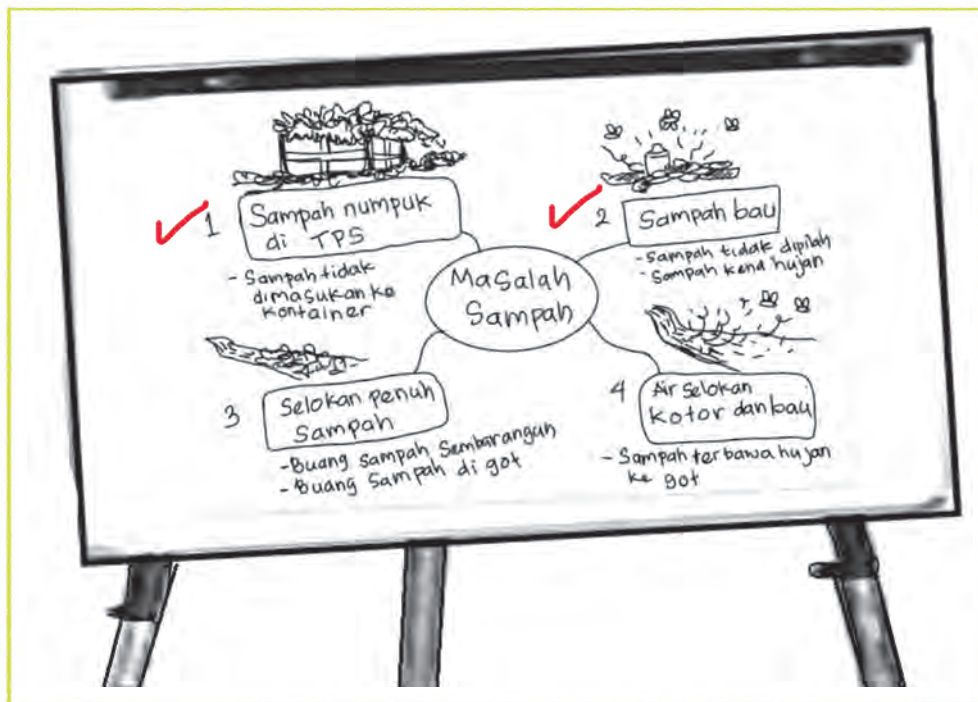 1
Sampah numpuk
di TPS
- Sampah tidak
dimasukan ke
kontainer
2
Sampah bau
- Sampah tidak dipilah
- Sampah kena hujan
Masalah
Sampah
3
Selokan penuh
Sampah
- Buang Sampah Sembarangan
- Buang Sampah di got
4
Air selokan
kotor dan bau
- Sampah terbawa hujan
ke got